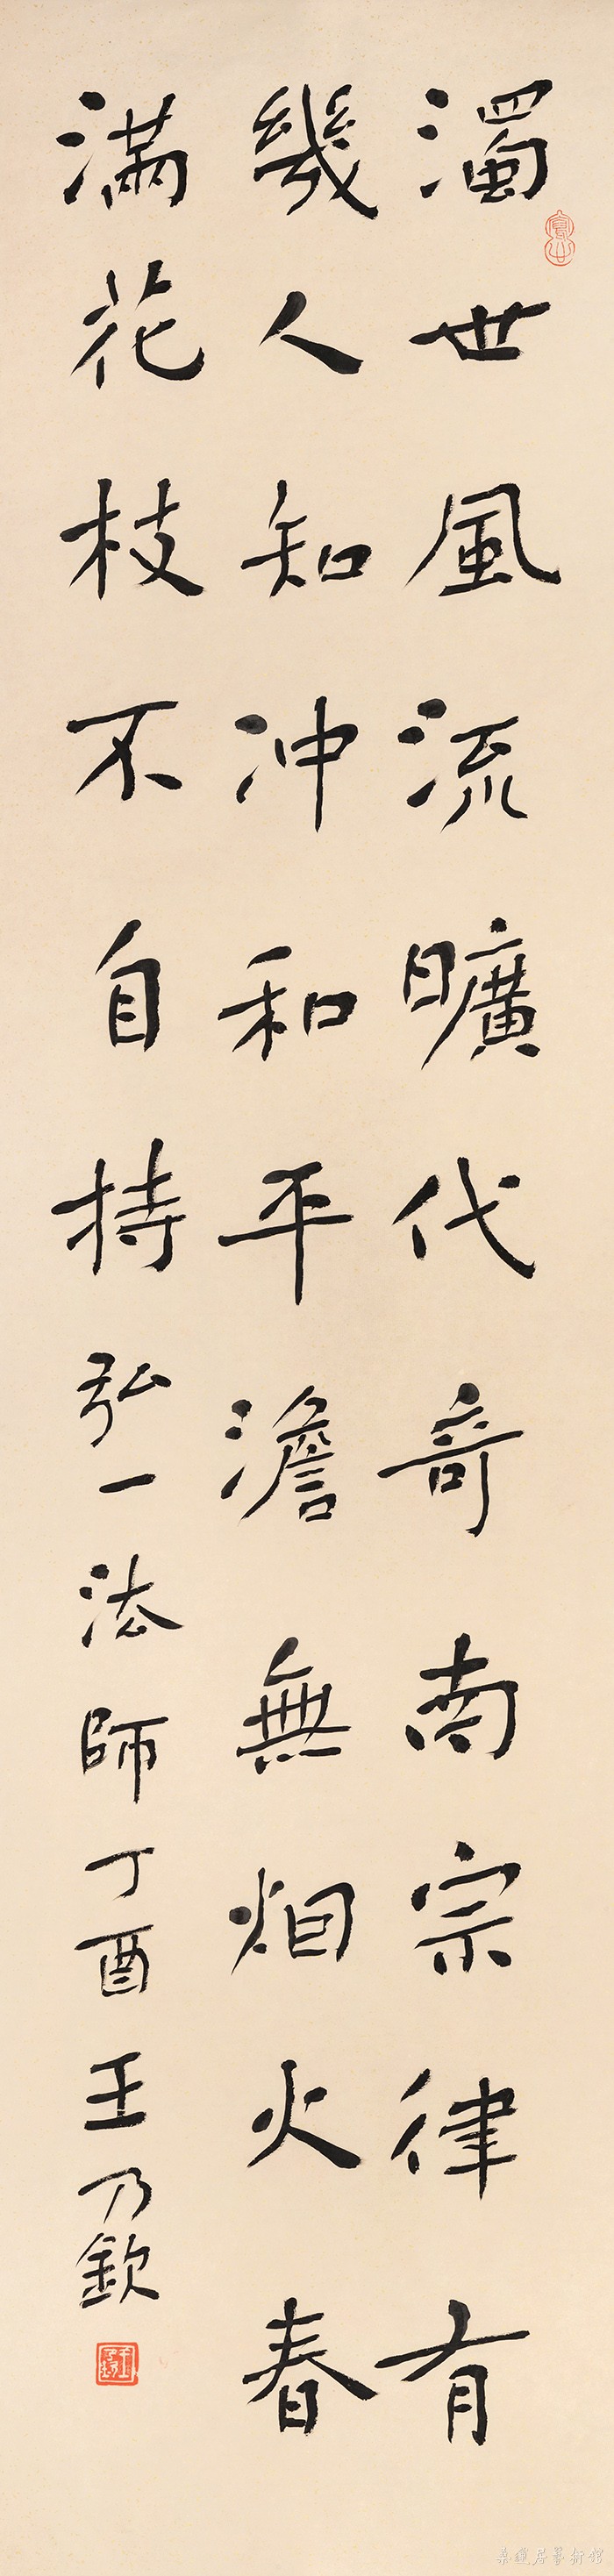 濁世風流曠代奇南宗律有
幾人知冲和平澹無烟火春
滿花枝不自持弘一法師丁酉王乃欽